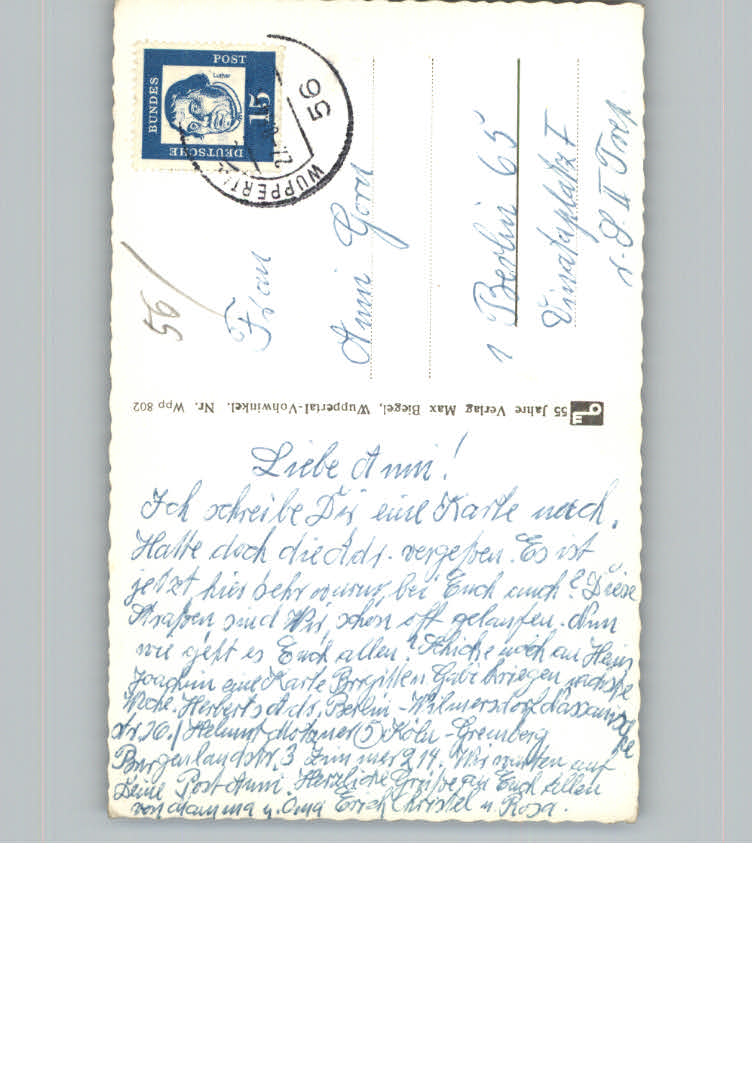 DEUTSCHE
BUNDES
POST
15
Luther
WUPPERTAL
56
56
Frau
Anni
1 Berlin 65
Vinetaplatz
II Trep.
55 Jahre Verlag Max Biegel, Wuppertal-Vohwinkel. Nr. Wpp 802
Liebe Anni!
Ich schreibe Dir eine Karte noch.
Hatte doch die Adr. vergeßen. Es ist
jetzt hier sehr warm, bei Euch auch? Diese
Straßen sind Wir schon oft gelaufen. Nun
wie geht es Euch allen? Schicke noch an Hein
Joachim eine Karte Brigitte u Gabi kriegen nächste
Woche. Herberts Adr. Berlin-Wilmersdorf
str. 26. / Helmut (5) Köln-Gremberg
Burgenlandstr. 3 Zimmer 214. Wir warten auf
Deine Post Anni. Herzliche Grüße an Euch Allen
von Mamma u. Oma Erich Christel u. Rosa.